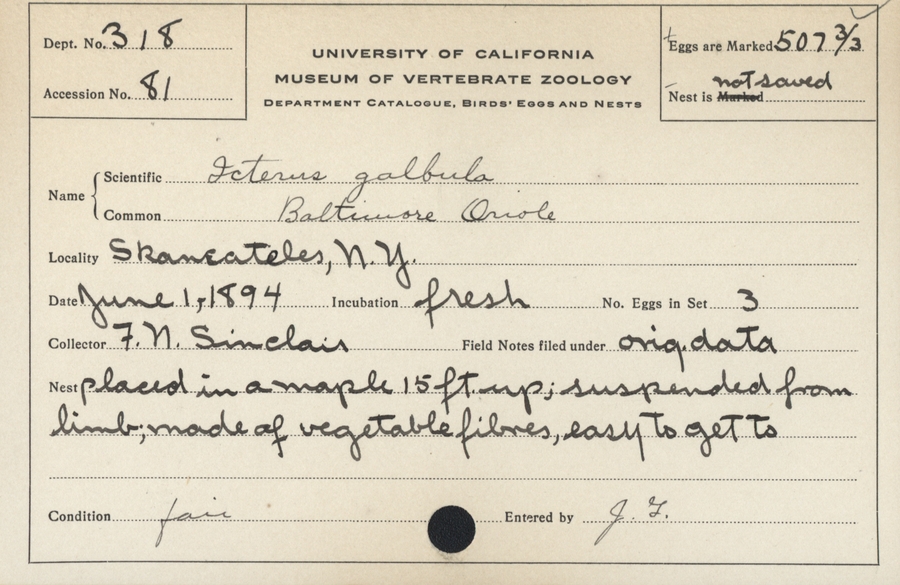 Dept. No. 318
Accession No. 81
UNIVERSITY OF CALIFORNIA
MUSEUM OF VERTEBRATE ZOOLOGY
DEPARTMENT CATALOGUE, BIRDS' EGGS AND NESTS
Eggs are Marked 507 3/3
not saved
Nest is Marked
Name
Scientific Icterus galbula
Common Baltimore Oriole
Locality Skaneateles, N.Y.
Date June 1, 1894 Incubation fresh No. Eggs in Set 3
Collector F. N. Sinclair Field Notes filed under orig. data
Nest placed in a maple 15 ft. up; suspended from
limb; made of vegetable fibres, easy to get to
Condition fair Entered by J. F.